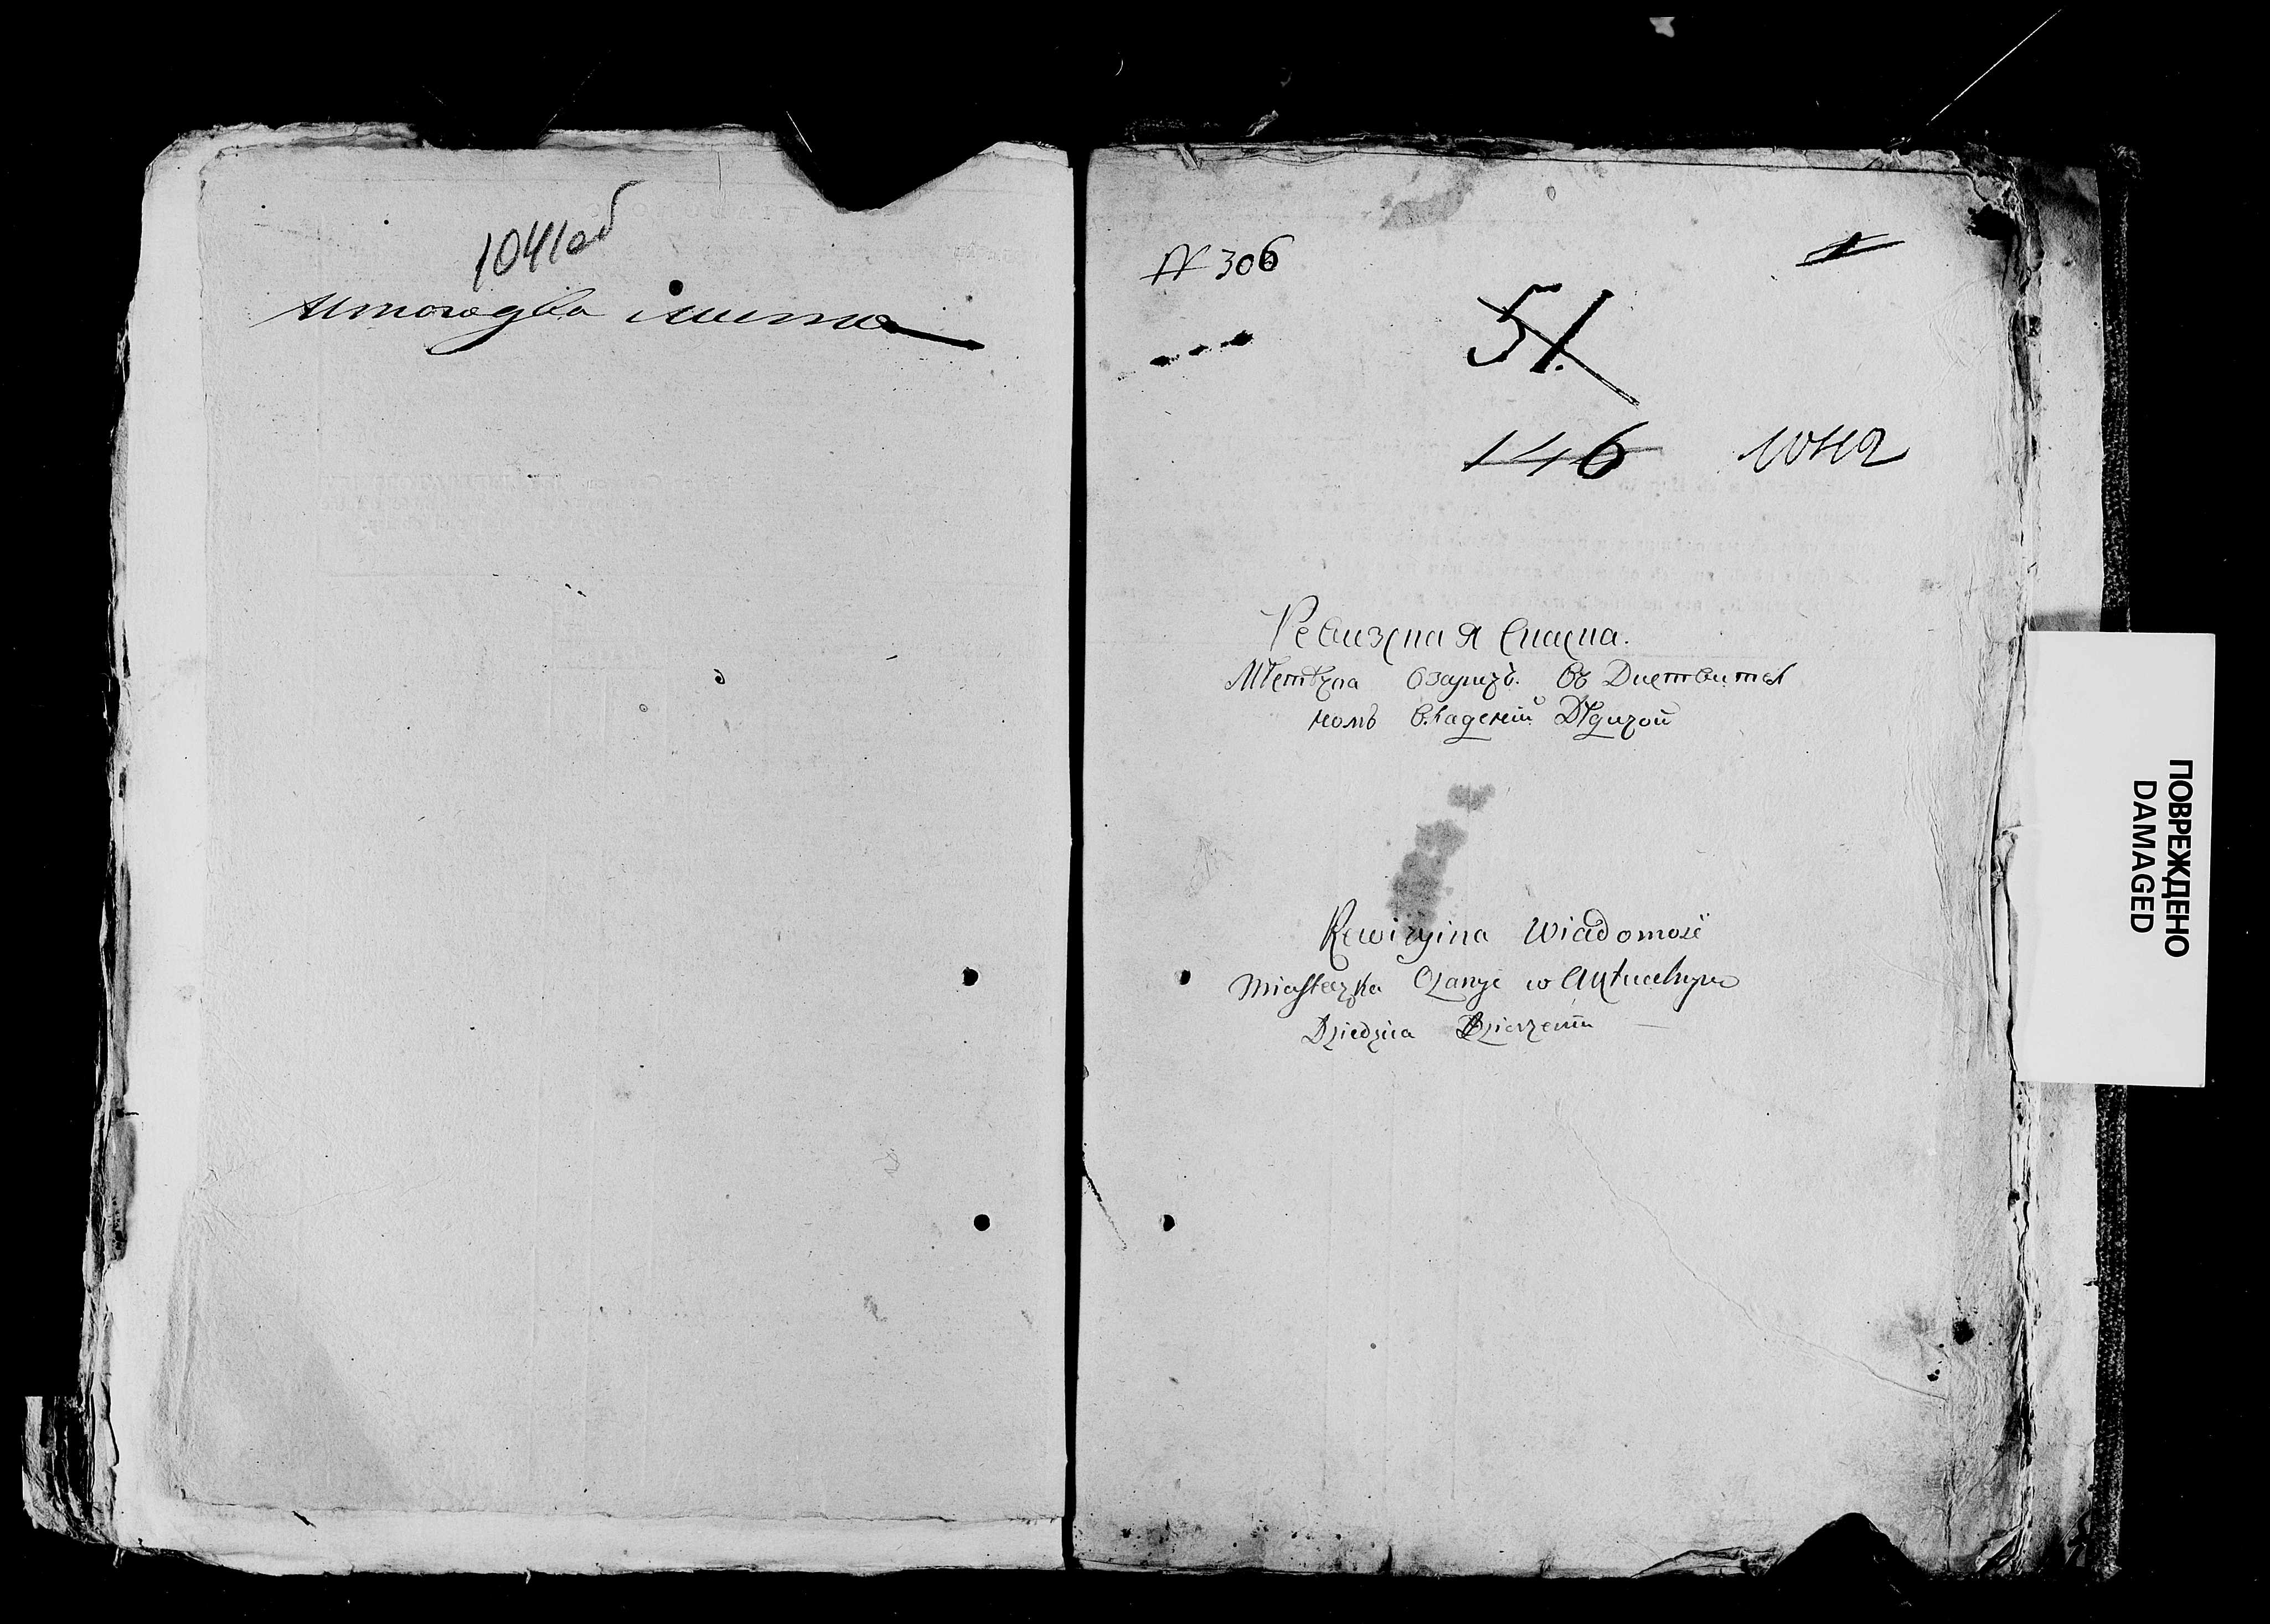 1041об
Итого два листа
N 306
1
51.
146 1042
Ревизкая Скаска.
Местечка Озариц. Въ Диствител
номъ Владении Дедизой
Rewizyina Wiadomość
Miasteczka Ozaryc w Aktualnym
Dziedzica Dzierzeniu
ПОВРЕЖДЕНО
DAMAGED